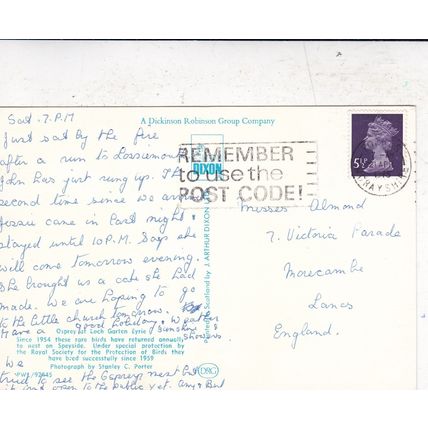 Sat. 7.P.M
A Dickinson Robinson Group Company
Just sat by the fire
after a run to Lossiemouth
John has just rung up. The
second time since we arrived
Jessie came in last night &
stayed until 10 P.M. Says she
will come tomorrow evening.
She brought us a cake she had
made. We are hoping to go
to the little church tomorrow.
Have a good holiday. Weather
sunshine & showers
DIXON
REMEMBER
to use the
POST CODE!
5½P
AYRSHIRE
Misses Almond
7. Victoria Parade
Morecambe
Lancs
England.
Printed in Scotland by J. ARTHUR DIXON
Osprey at Loch Garten Eyrie
Since 1954 these rare birds have returned annually
to nest on Speyside. Under special protection by
the Royal Society for the Protection of Birds they
have bred successfully since 1959
Photograph by Stanley C. Porter
DRG
We
tried to see the Ospreys nest but
it isnt open to the public yet.